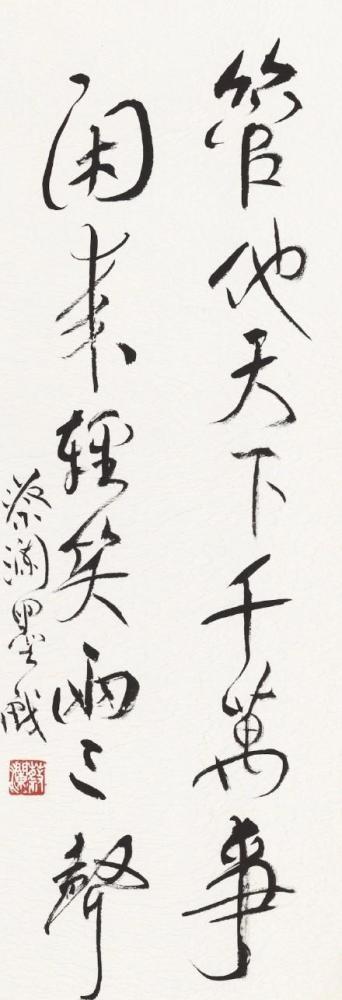 管他天下千萬事
閑來輕笑兩三聲
蔡瀾墨戲
蔡瀾